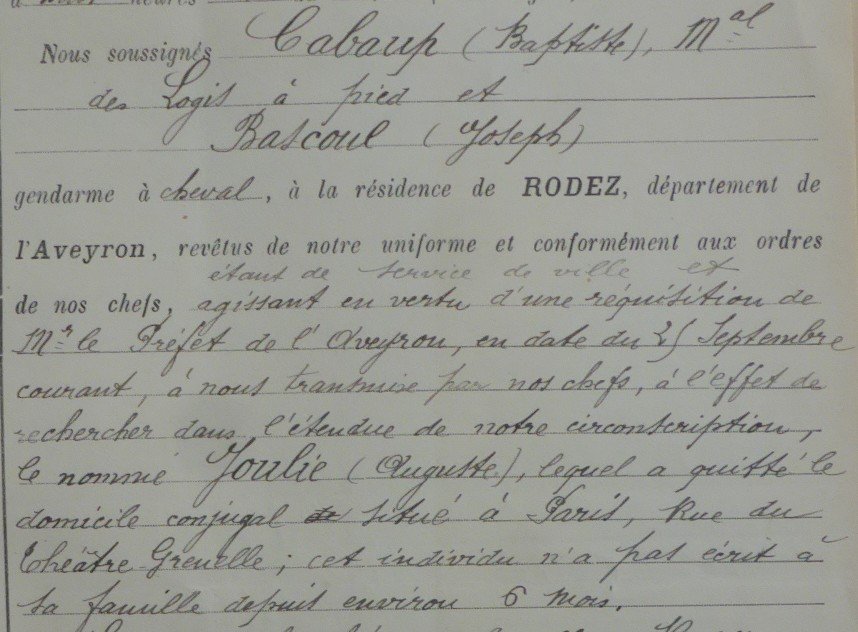 Nous soussignés Cabaup (Baptiste), Mal
des Logis à pied et
Bascoul (Joseph)
gendarme à cheval, à la résidence de RODEZ, département de
l'Aveyron, revêtus de notre uniforme et conformément aux ordres
étant de service de ville et
de nos chefs, agissant en vertu d'une réquisition de
Mr le Préfet de l'Aveyron, en date du 25 Septembre
courant, à nous transmise par nos chefs, à l'effet de
rechercher dans l'étendue de notre circonscription,
le nommé Joulie (Auguste), lequel a quitté le
domicile conjugal situé à Paris, Rue du
Théâtre Grenelle ; cet individu n'a pas écrit à
sa famille depuis environ 6 mois.